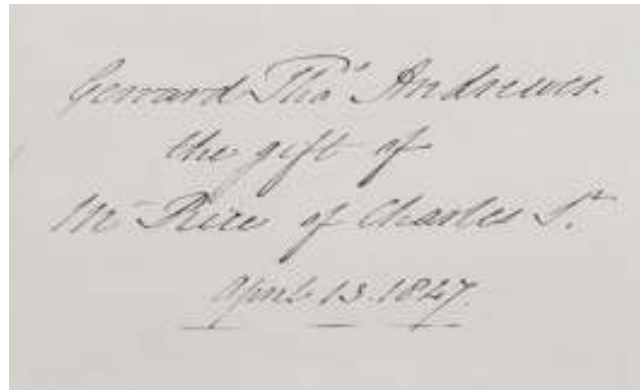 Gerrard Thos Andrewes.
the gift of
Mr Rice of Charles St.
April 13. 1827.